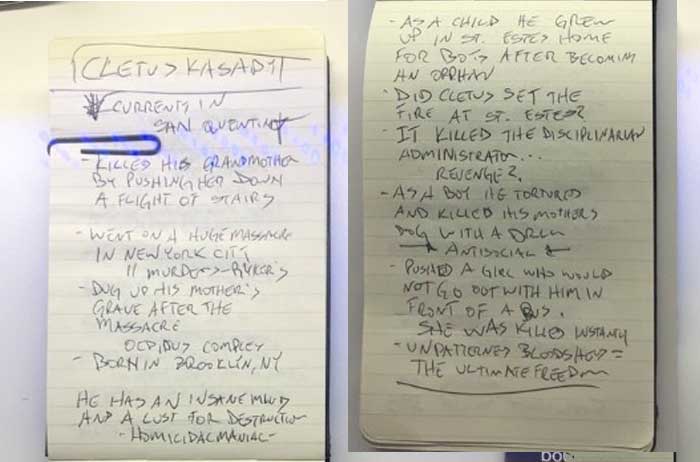 CLETUS KASADY
CURRENTLY IN
SAN QUENTIN
- KILLED HIS GRANDMOTHER
BY PUSHING HER DOWN
A FLIGHT OF STAIRS
- WENT ON A HUGE MASSACRE
IN NEW YORK CITY
11 MURDERS - RYKER'S
- DUG UP HIS MOTHER'S
GRAVE AFTER THE
MASSACRE
OEDIPUS COMPLEX
- BORN IN BROOKLIN, NY
HE HAS AN INSANE MIND
AND A LUST FOR DESTRUCTION
- HOMICIDAL MANIAC -
- AS A CHILD HE GREW
UP IN ST. ESTES HOME
FOR BOYS AFTER BECOMING
AN ORPHAN
- DID CLETUS SET THE
FIRE AT ST. ESTES?
- IT KILLED THE DISCIPLINARIAN
ADMINISTRATOR...
REVENGE?
- AS A BOY HE TORTURED
AND KILLED HIS MOTHERS
DOG WITH A DRILL
ANTISOCIAL
- PUSHED A GIRL WHO WOULD
NOT GO OUT WITH HIM IN
FRONT OF A BUS.
SHE WAS KILLED INSTANTLY
- UNPATTERNED BLOODSHED =
THE ULTIMATE FREEDOM